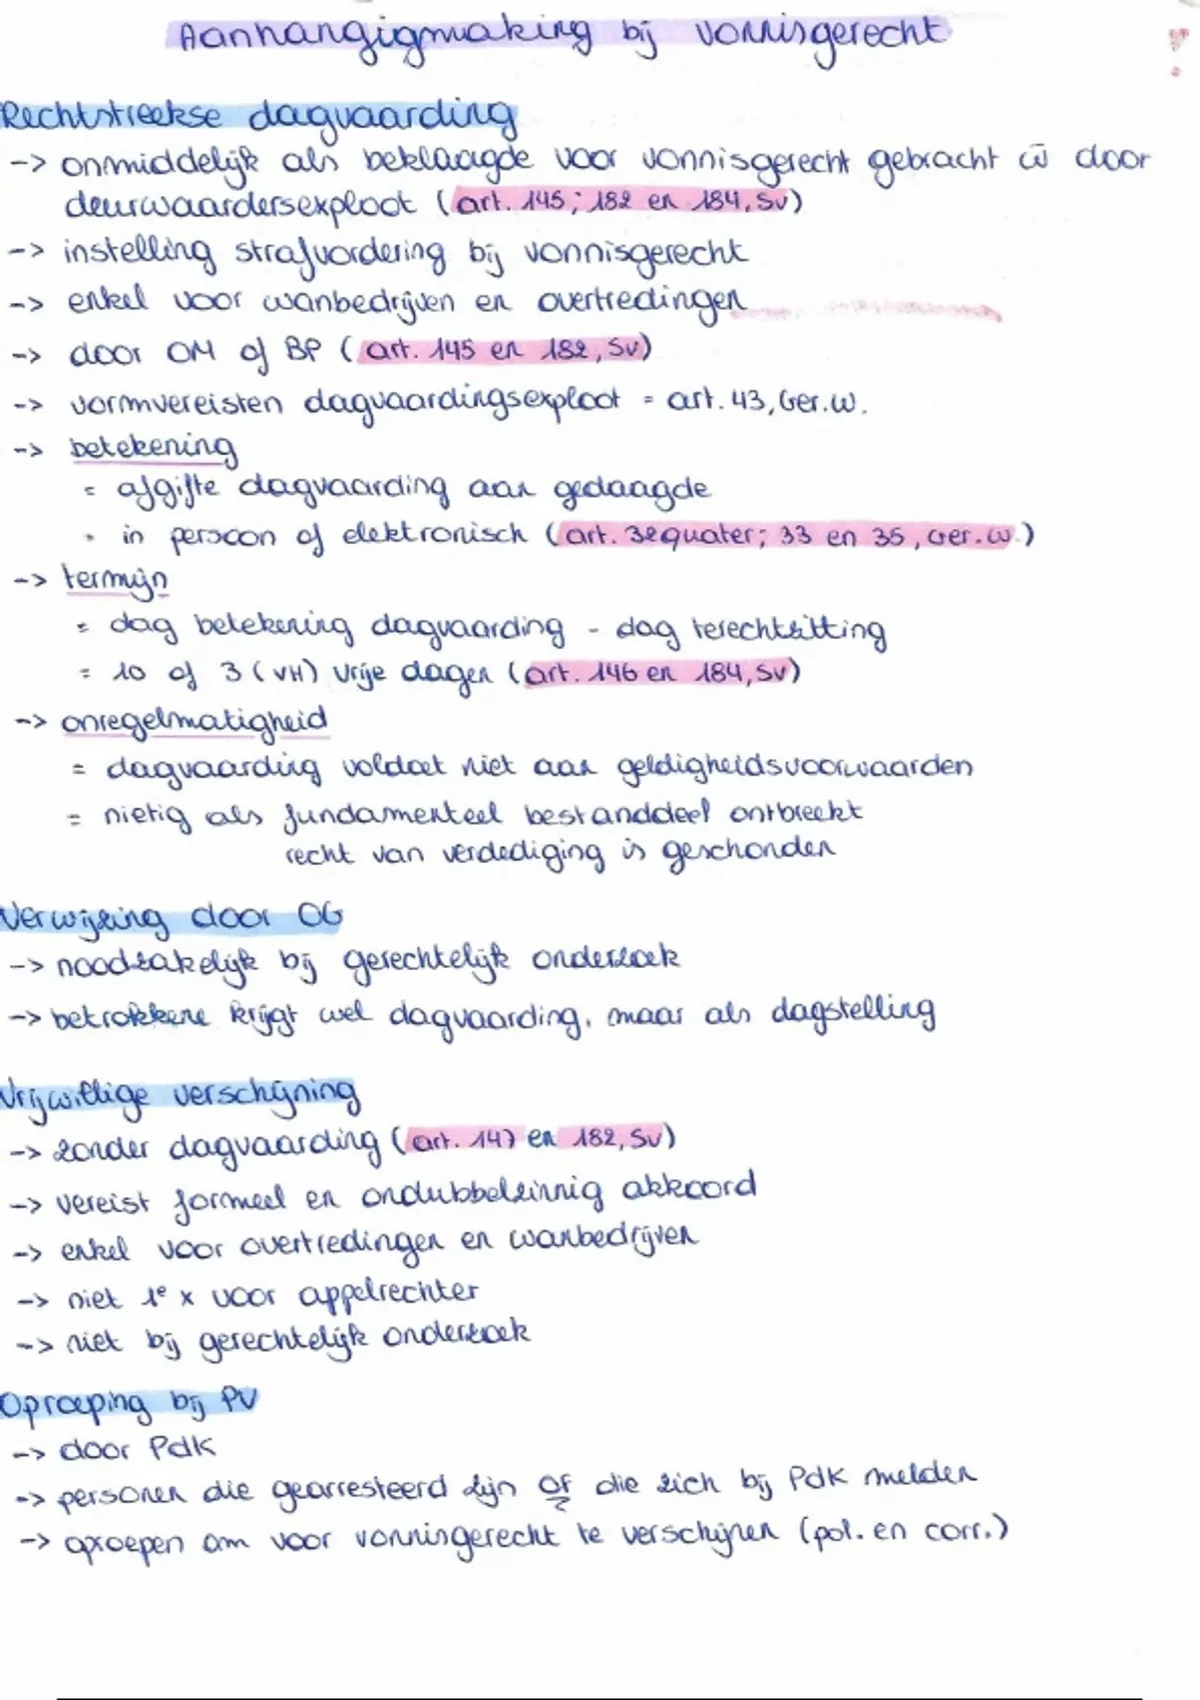 Aanhangigmaking bij vonnisgerecht
Rechtstreekse dagvaarding
-> onmiddelijk als beklaagde voor vonnisgerecht gebracht w̄ door
deurwaardersexploot (art. 145; 182 en 184, Sv)
-> instelling strafvordering bij vonnisgerecht
-> enkel voor wanbedrijven en overtredingen
-> door OM of BP (art. 145 en 182, Sv)
-> vormvereisten dagvaardingsexploot = art. 43, Ger.W.
-> betekening
= afgifte dagvaarding aan gedaagde
• in persoon of elektronisch (art. 32quater; 33 en 35, Ger.W.)
-> termijn
= dag betekening dagvaarding - dag terechtzitting
= 10 of 3 (VH) vrije dagen (art. 146 en 184, Sv)
-> onregelmatigheid
= dagvaarding voldoet niet aan geldigheidsvoorwaarden
= nietig als fundamenteel bestanddeel ontbreekt
recht van verdediging is geschonden
Verwijzing door OG
-> noodzakelijk bij gerechtelijk onderzoek
-> betrokkene krijgt wel dagvaarding, maar als dagstelling
Vrijwillige verschijning
-> zonder dagvaarding (art. 147 en 182, Sv)
-> vereist formeel en ondubbelzinnig akkoord
-> enkel voor overtredingen en wanbedrijven
-> niet 1e x voor appelrechter
-> niet bij gerechtelijk onderzoek
Oproeping bij PV
-> door PdK
-> personen die gearresteerd zijn OF die zich bij PdK melden
-> oproepen om voor vonnisgerecht te verschijnen (pol. en corr.)